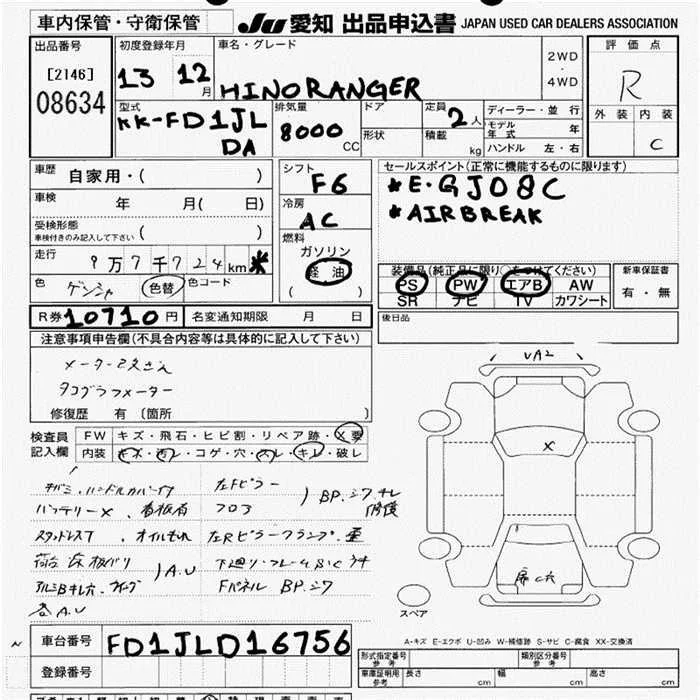 車内保管・守衛保管
JU 愛知 出品申込書 JAPAN USED CAR DEALERS ASSOCIATION
出品番号
[2146]
08634
初度登録年月
13 12月
車名・グレード
HINO RANGER
2WD
・
4WD
評価点
R
外装 内装
C
型式
KK-FD1JL
DA
排気量
8000 CC
ドア
形状
定員
2人
積載
kg
ディーラー・並行
モデル年式 年
ハンドル 左・右
車歴
自家用・( )
車検
年 月( 日)
受検形態
車検付きのみ記入して下さい ( )
走行
9万7千724km *
色
ゲンシャ 色替
色コード
シフト
F6
冷房
AC
燃料
ガソリン
軽油
( )
セールスポイント(正常に機能するものに限ります)
*E・GJ08C
*AIRBREAK
装備品(純正品に限り○をつけてください)
PS PW エアB AW
SR ナビ TV カワシート
新車保証書
有・無
R券 10710円
名変通知期限 月 日
後日品
注意事項申告欄(不具合内容等は具体的に記入して下さい)
タコグラフメーター
修復歴 有 〔箇所 〕
検査員
記入欄
FW キズ・飛石・ヒビ割・リペア跡・X要
内装 キズ・汚レ・コゲ・穴・スレ・キレ・破レ
ハンドルカバー
左Fピラー
バッテリーX 看板有
フロア
BP.シワ
修復
オイルもれ
左Rピラー
荷台 床板バリ
A.U
下廻り・フレームS・C
アルミBキレ穴
Fパネル BP.シワ
A.U
UA2
X
スペア
A-キズ E-エクボ U-凹み W-補修跡 S-サビ C-腐食 XX-交換済
車台番号
FD1JLD16756
登録番号
形式指定番号
参考
類別区分番号
参考
車庫証明用
参考
長さ cm
幅 cm
高さ cm